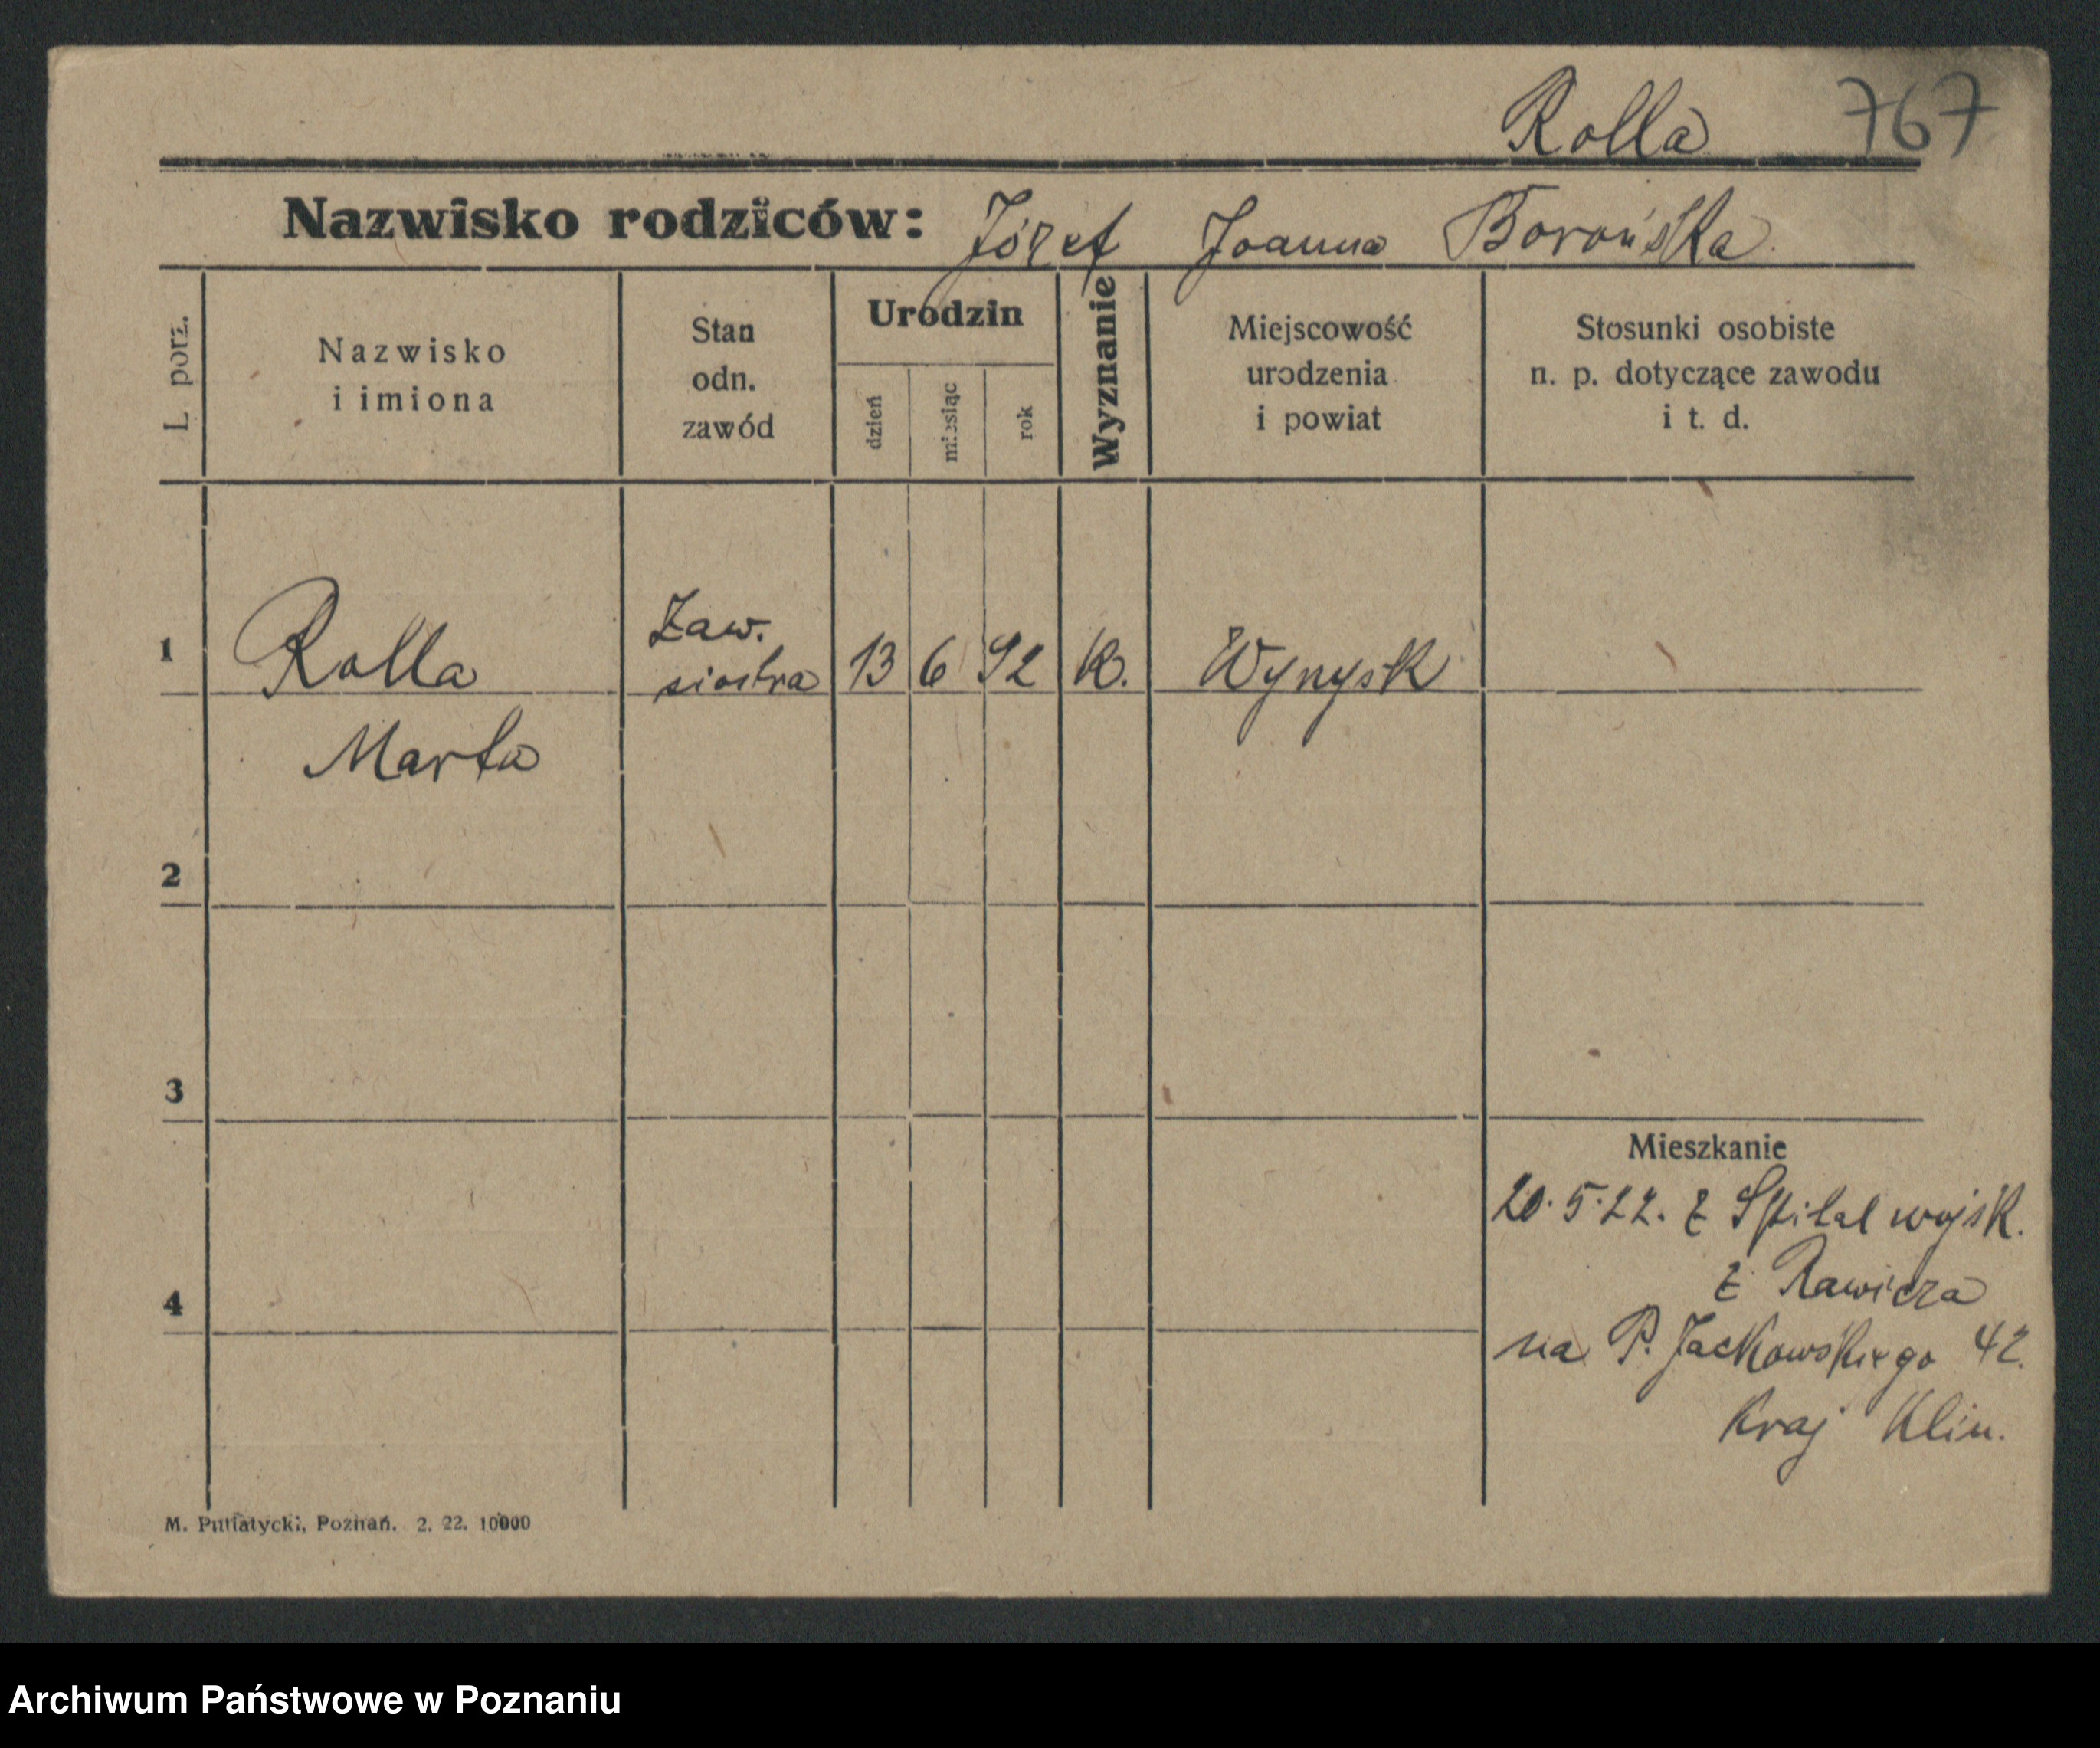 Rolla 767
Nazwisko rodziców: Józef Joanna Borońska
L. porz.
Nazwisko
i imiona
Stan
odn.
zawód
Urodzin
dzień
miesiąc
rok
Wyznanie
Miejscowość
urodzenia
i powiat
Stosunki osobiste
n. p. dotyczące zawodu
i t. d.
1 Rolla Zaw. siostra 13 6 92 K. Wyrysk
Marta
2
3
4
Mieszkanie
20.5.22. z Szpital wojsk.
z Rawicza
na P. Jackowskiego 42.
Kraj Klin.
M. Putiatycki, Poznań. 2. 22. 10000
Archiwum Państwowe w Poznaniu